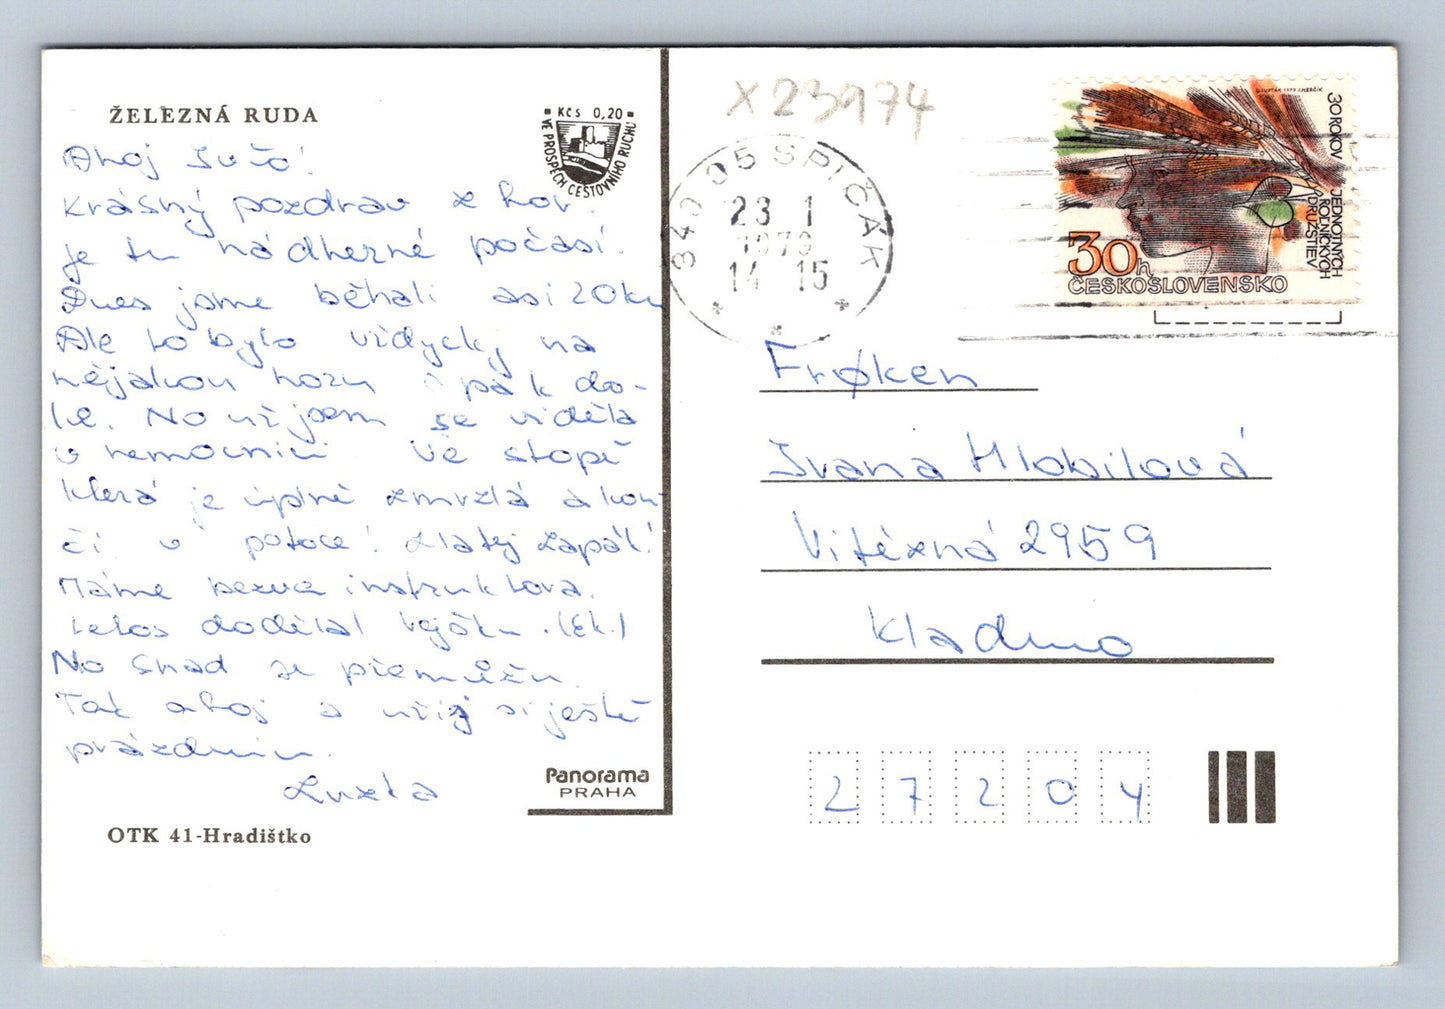 ŽELEZNÁ RUDA
Kčs 0,20
VE PROSPĚCH CESTOVNÍHO RUCHU
Ahoj
Krásný pozdrav z hor.
je tu nádherné počasí.
Dnes jsme běhali asi 20km
Ale to bylo vždycky na
nějakou horu a pak do-
le. No už jsem se viděla
v nemocnici. Ve stopě
která je úplně zmrzlá a kon-
čí v potoce! Zlatej Zápal!
Máme bezva instruktora.
Letos dodělal vejšku.
No snad se přemůžu.
Tak ahoj a užij si ještě
prázdnin.
Panorama
PRAHA
OTK 41-Hradištko
X23974
340 05 ŠPIČÁK
23 1
1979
14 15
30 ROKOV JEDNOTNÝCH ROĽNÍCKYCH DRUŽSTIEV
30h
ČESKOSLOVENSKO
Frøken
Ivana Hlobilová
Vítězná 2959
Kladno
27204